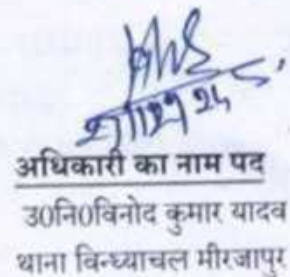 अधिकारी का नाम पद
उ0नि0विनोद कुमार यादव
थाना विन्ध्याचल मीरजापुर